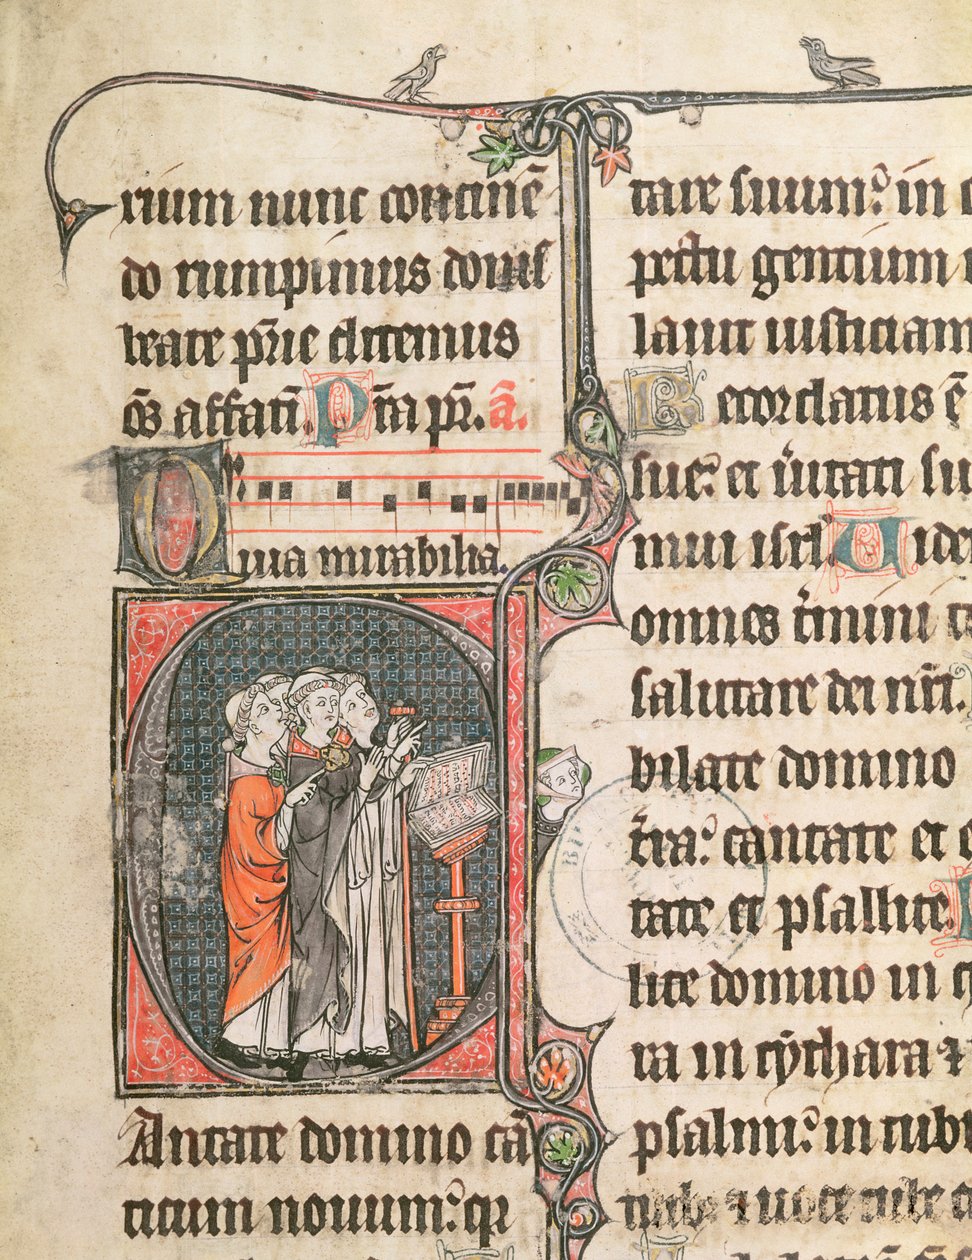 rium nunc continē
do rumpimus
beate p̄rie ditemus
affatī. P̄ta pr̄. ā.
Quia mirabilia.
CAntate domino cā
ticum nouum: qr
tare suum: in c
pectu gentium r
lauit iusticiam
Recordatus ē
sue: et ūitati su
mui isrl. Uide
omnes t̄mini t
salutare dei nr̄i.
bilate domino
t̄ra: cantate et e
tate et psallite.
lite domino in c
ra in cythara ⁊
psalmi: in tub
uoce tube c